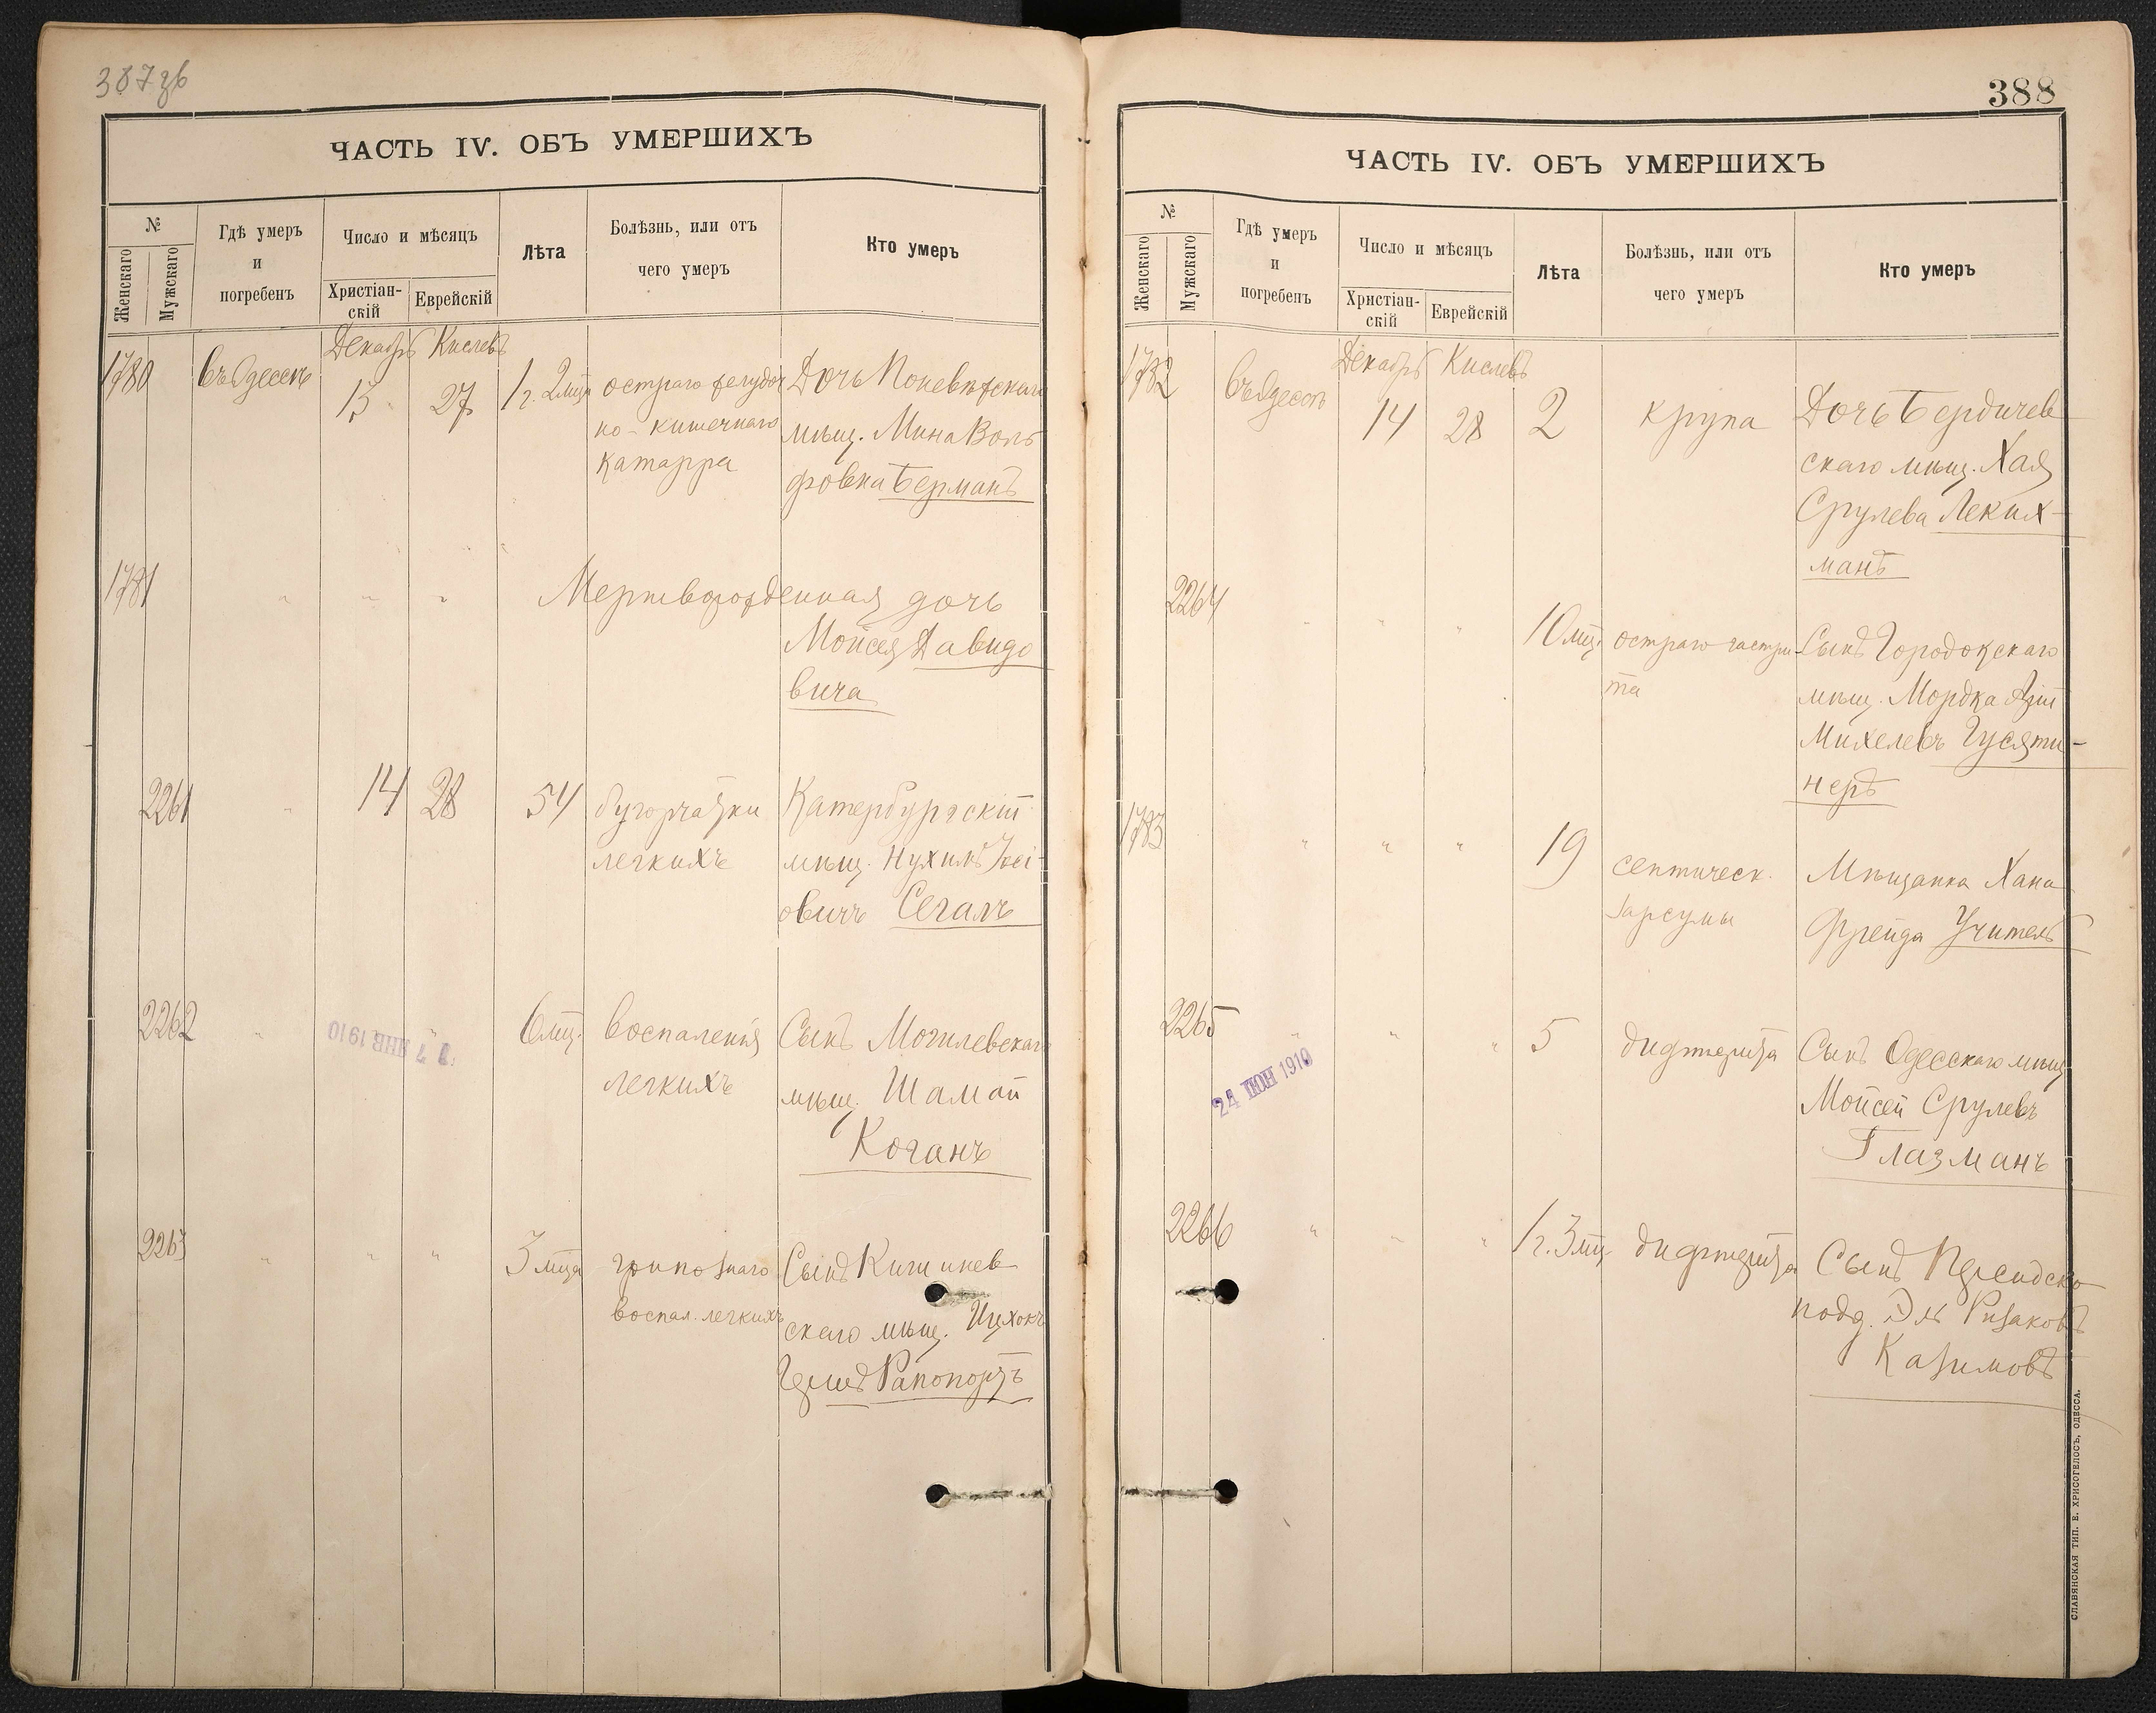 387 зв
ЧАСТЬ IV. ОБЪ УМЕРШИХЪ
№
Женскаго
Мужскаго
Гдѣ умеръ
и
погребенъ
Число и мѣсяцъ
Христіан-
скій
Еврейскій
Лѣта
Болѣзнь, или отъ
чего умеръ
Кто умеръ
Декабрь Кислевъ
1780 Въ Одессѣ 13 27 1 г. 2 мца остраго желудоч
но-кишечнаго
катарра
Дочь Поневѣжскаго
мѣщ. Мина Воль
фовна Берманъ
1781 " " " Мертворожденная дочь
Мойсея Давидо
вича
2261 " 14 28 54 бугорчатки
легкихъ
Катербургскій
мѣщ. Нухимъ
овичъ Сегалъ
2262 " " 6 мц. воспаленія
легкихъ
Сынъ Могилевскаго
мѣщ. Шамай
Коганъ
7 ЯНВ 1910
2263 " " " 3 мца грипознаго
воспал. легкихъ
Сынъ Кишинев
скаго мѣщ. Ицхокъ
Гершъ Рапопортъ
388
ЧАСТЬ IV. ОБЪ УМЕРШИХЪ
№
Женскаго
Мужскаго
Гдѣ умеръ
и
погребенъ
Число и мѣсяцъ
Христіан-
скій
Еврейскій
Лѣта
Болѣзнь, или отъ
чего умеръ
Кто умеръ
Декабрь Кислевъ
1782 Въ Одессѣ 14 28 2 крупа
Дочь Бердичев
скаго мѣщ. Хая
Срулева Леких-
манъ
2264 " " " 10 мц. остраго гастри-
та
Сынъ Городокскаго
мѣщ. Мордка
Михелевъ Гусяти-
неръ
1783 " " " 19 септическ.
Мѣщанка Хана
Фрейда Учитель
2265 " " " 5 дифтерита
Сынъ Одесскаго мѣщ
Мойсей Срулевъ
Глазманъ
24 ІЮН 1910
2266 " " " 1 г. 3 мц. дифтерита
Сынъ Персидско
подд. Эль Ризаковъ
Казимовъ
СЛАВЯНСКАЯ ТИП. Е. ХРИСОГЕЛОСЪ, ОДЕССА.